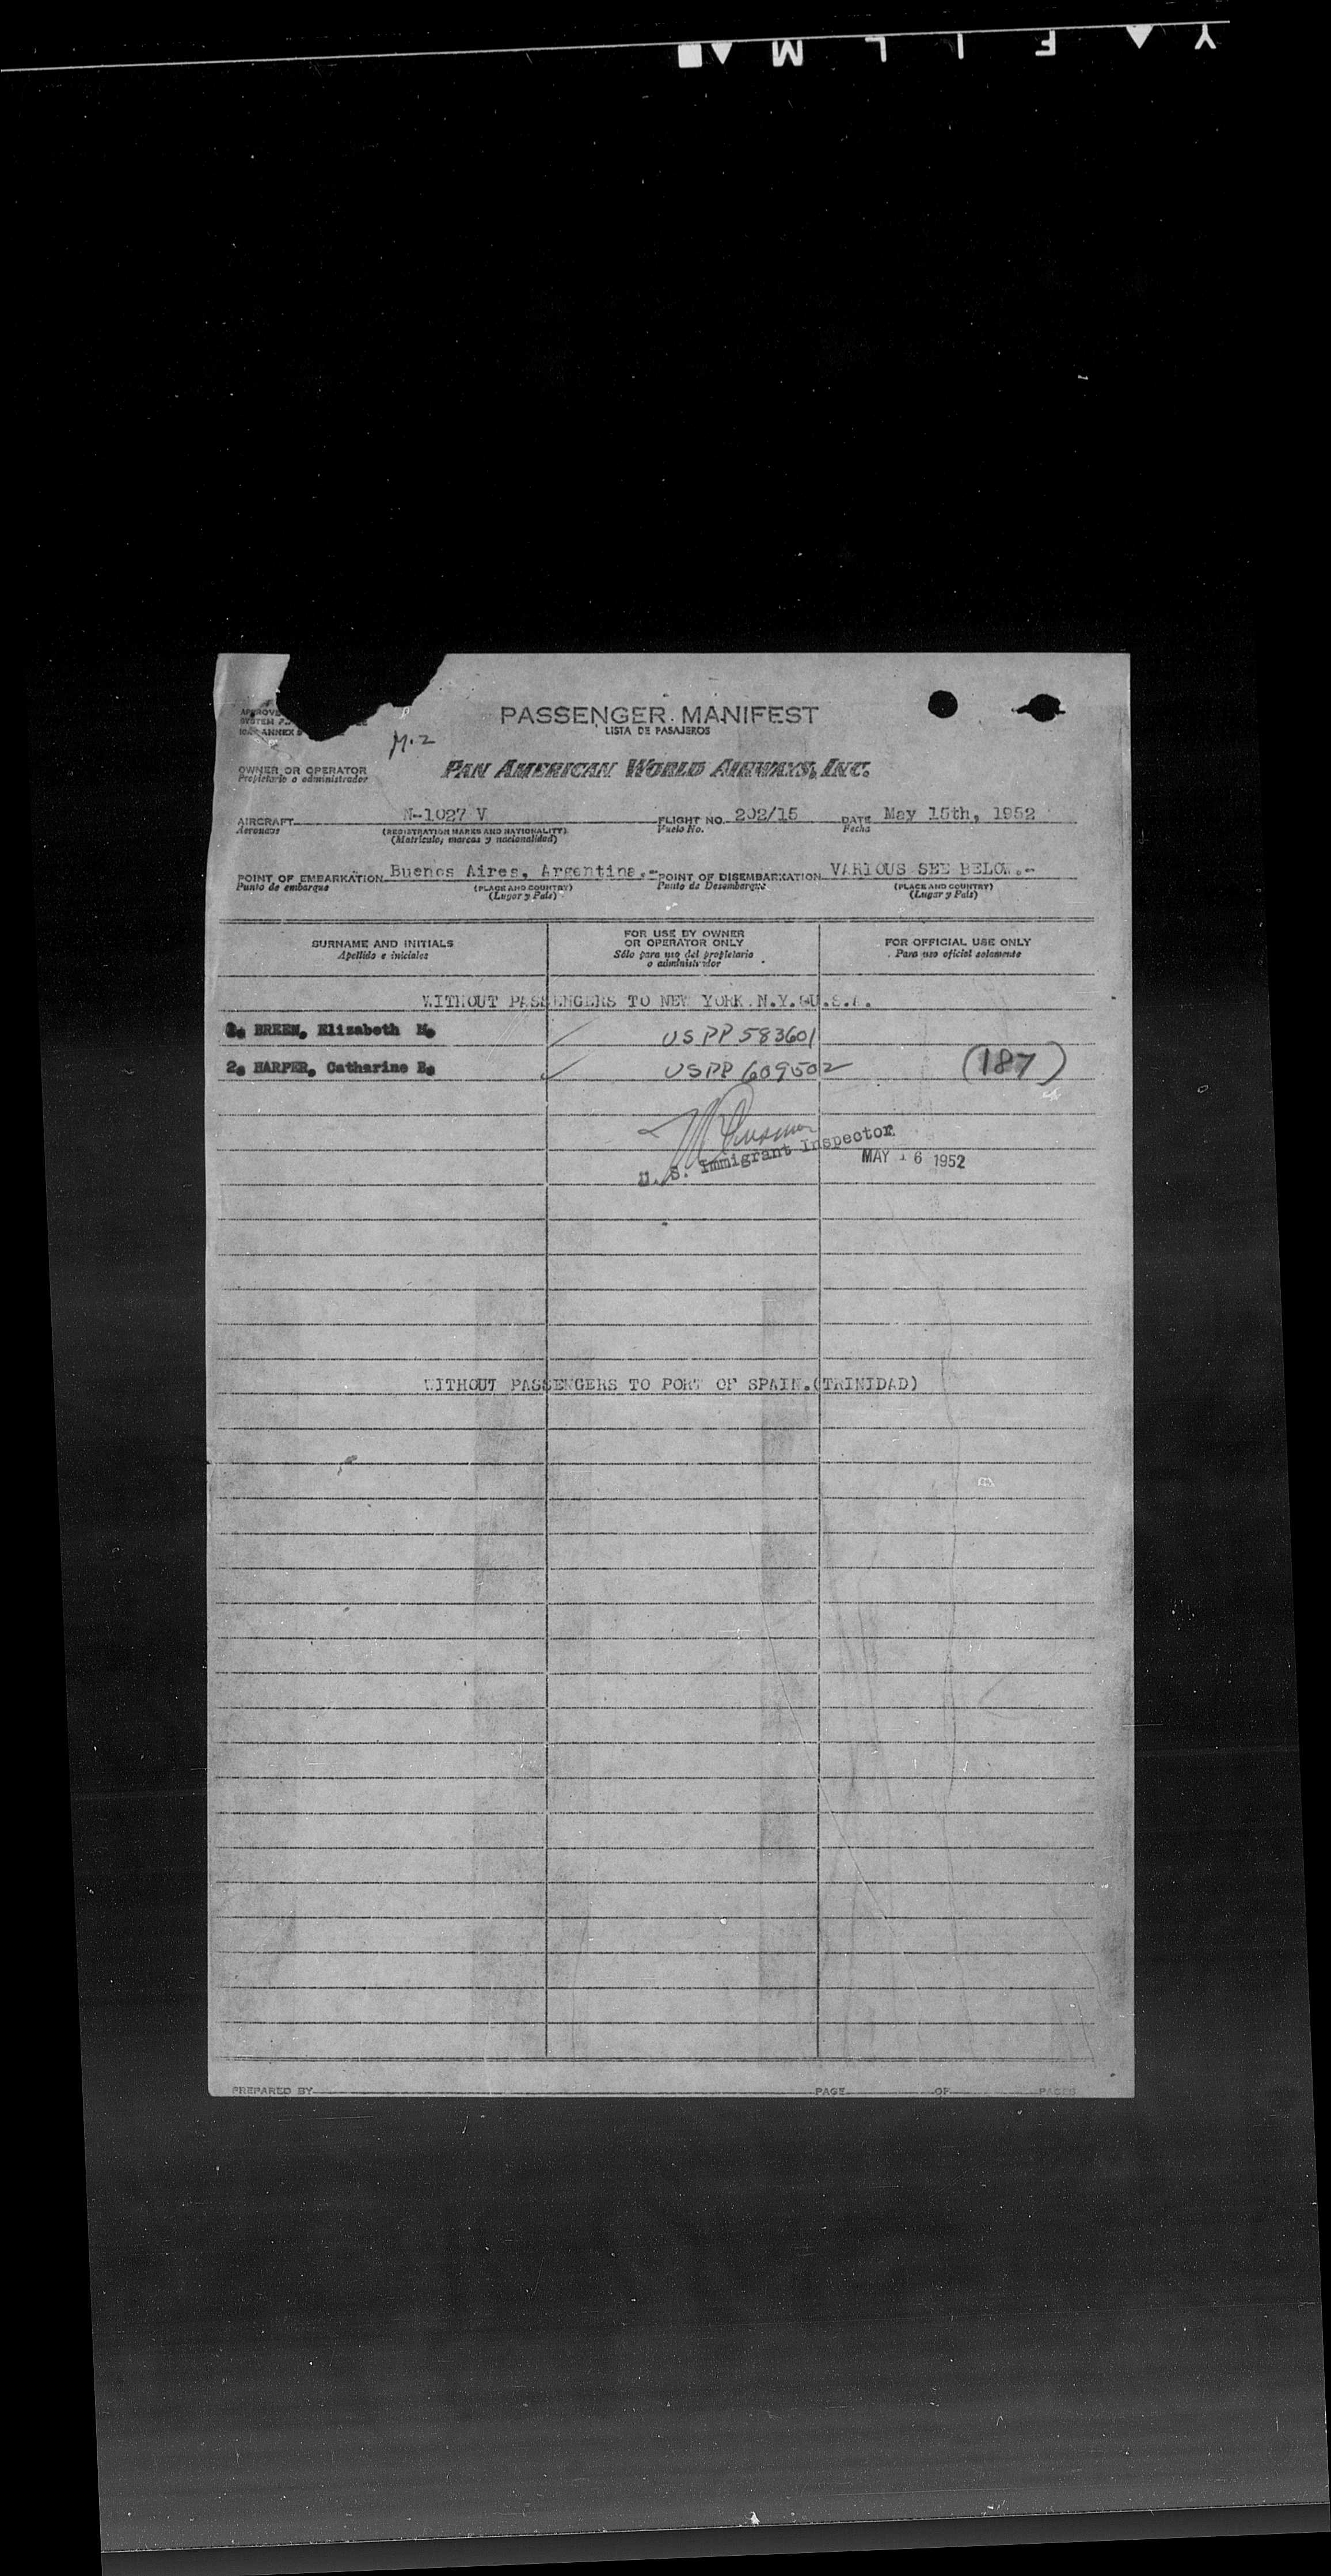 PASSENGER MANIFEST
LISTA DE PASAJEROS
M-2
OWNER OR OPERATOR
Propietario o administrador
PAN AMERICAN WORLD AIRWAYS, INC.
AIRCRAFT N-1027 V FLIGHT NO. 202/15 DATE May 15th, 1952
Aeronave (REGISTRATION MARKS AND NATIONALITY) Vuelo No. Fecha
(Matrícula, marcas y nacionalidad)
POINT OF EMBARKATION Buenos Aires, Argentina.- POINT OF DISEMBARKATION VARIOUS SEE BELOW.-
Punto de embarque (PLACE AND COUNTRY) Punto de Desembarque (PLACE AND COUNTRY)
(Lugar y País) (Lugar y País)
SURNAME AND INITIALS
Apellido e iniciales
FOR USE BY OWNER
OR OPERATOR ONLY
Sólo para uso del propietario
o administrador
FOR OFFICIAL USE ONLY
Para uso oficial solamente
WITHOUT PASSENGERS TO NEW YORK N.Y. U.S.A.
1. BREEN, Elizabeth M. US PP 583601
2. HARPER, Catharine B. US PP 609502 (187)
U. S. Immigrant Inspector
MAY 16 1952
WITHOUT PASSENGERS TO PORT OF SPAIN.(TRINIDAD)
PREPARED BY PAGE OF PAGES